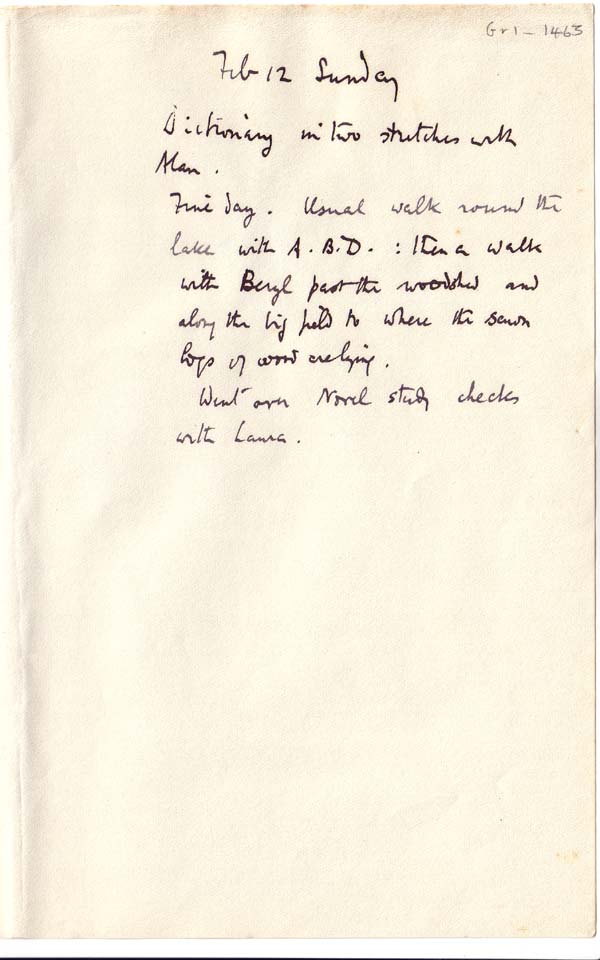 Gr1-1463
Feb 12 Sunday
Dictionary in two stretches with
Alan.
Fine day. Usual walk round the
lake with A.B.D. : then a walk
with Beryl past the woodshed and
along the big field to where the sawn
logs of wood are lying.
Went over Novel study checks
with Laura.